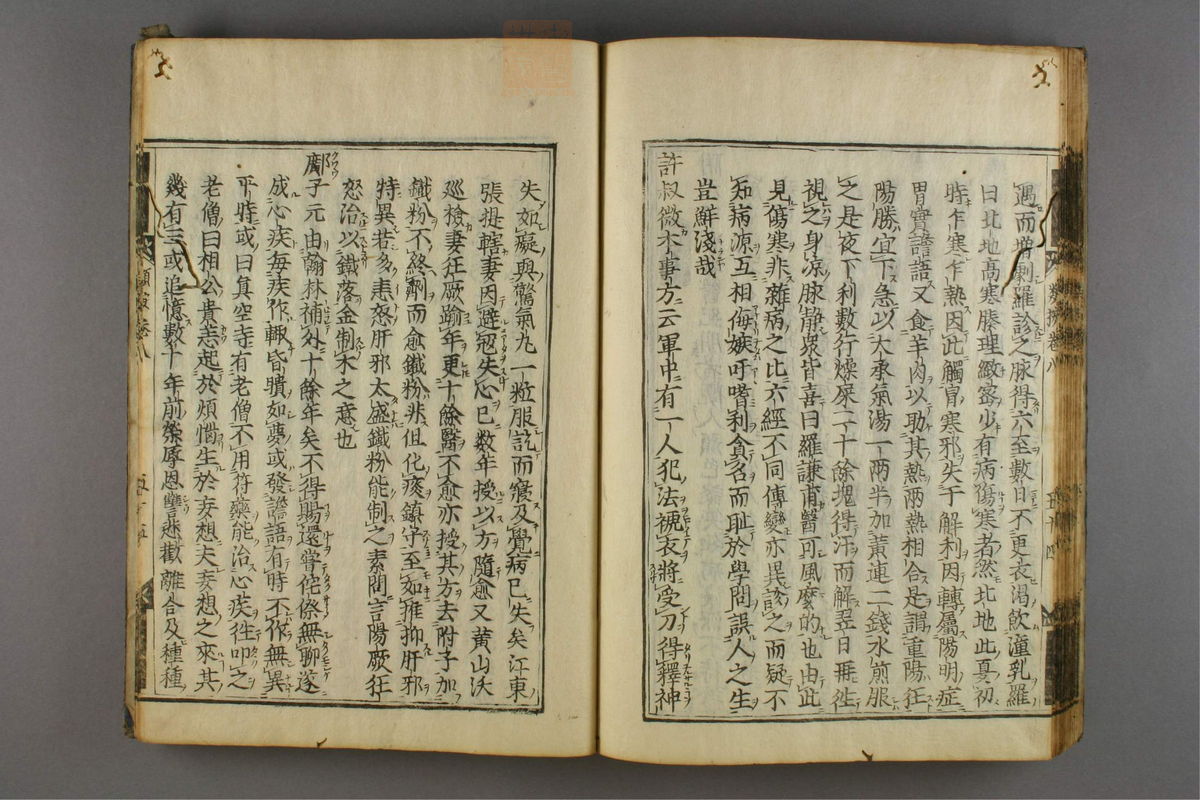 遇而增劇羅診之脉得六至數日不更衣渴飲潼乳羅
曰北地高寒腠理緻密少有病傷寒者然北地此夏初
時乍寒乍熱因此觸冒寒邪失于解利因轉屬陽明症
胃實譫語又食羊肉以助其熱兩熱相合是謂重陽狂
陽勝宜下急以大承氣湯一兩半加黃連二錢水煎服
之是夜下利數行燥屎二十餘塊得汗而解翌日再徃
視之身凉脉靜衆皆喜曰羅謙甫醫可風麽的也由此
見傷寒非雜病之比六經不同傳變亦異詼之而疑不
知病源互相侮嫉吁嗜利貪名而耻於學問誤人之生
豈鮮淺哉
許叔微本事方云軍中有一人犯法褫衣將受刀得釋神
失如癡與驚氣丸一粒服訖而寢及覺病已失矣江東
張提轄妻因避冦失心已数年授以方隨愈又黄山沃
巡檢妻狂厥踰年更十餘醫不愈亦授其方去附子加
鐵粉不終劑而愈鐵粉非但化痰鎮守至如推抑肝邪
特異若多恚怒肝邪太盛鐵粉能制之素問言陽厥狂
怒治以鐵落金制木之意也
鄺子元由翰林補外十餘年矣不得賜還嘗侘傺無聊遂
成心疾每疾作輒昏聵如夢或發譫語有時不作無異
平時或曰真空寺有老僧不用符藥能治心疾徃叩之
老僧曰相公貴恙起於煩惱生於妄想夫妄想之來其
幾有三或追憶數十年前榮辱恩讐悲歡離合及種種